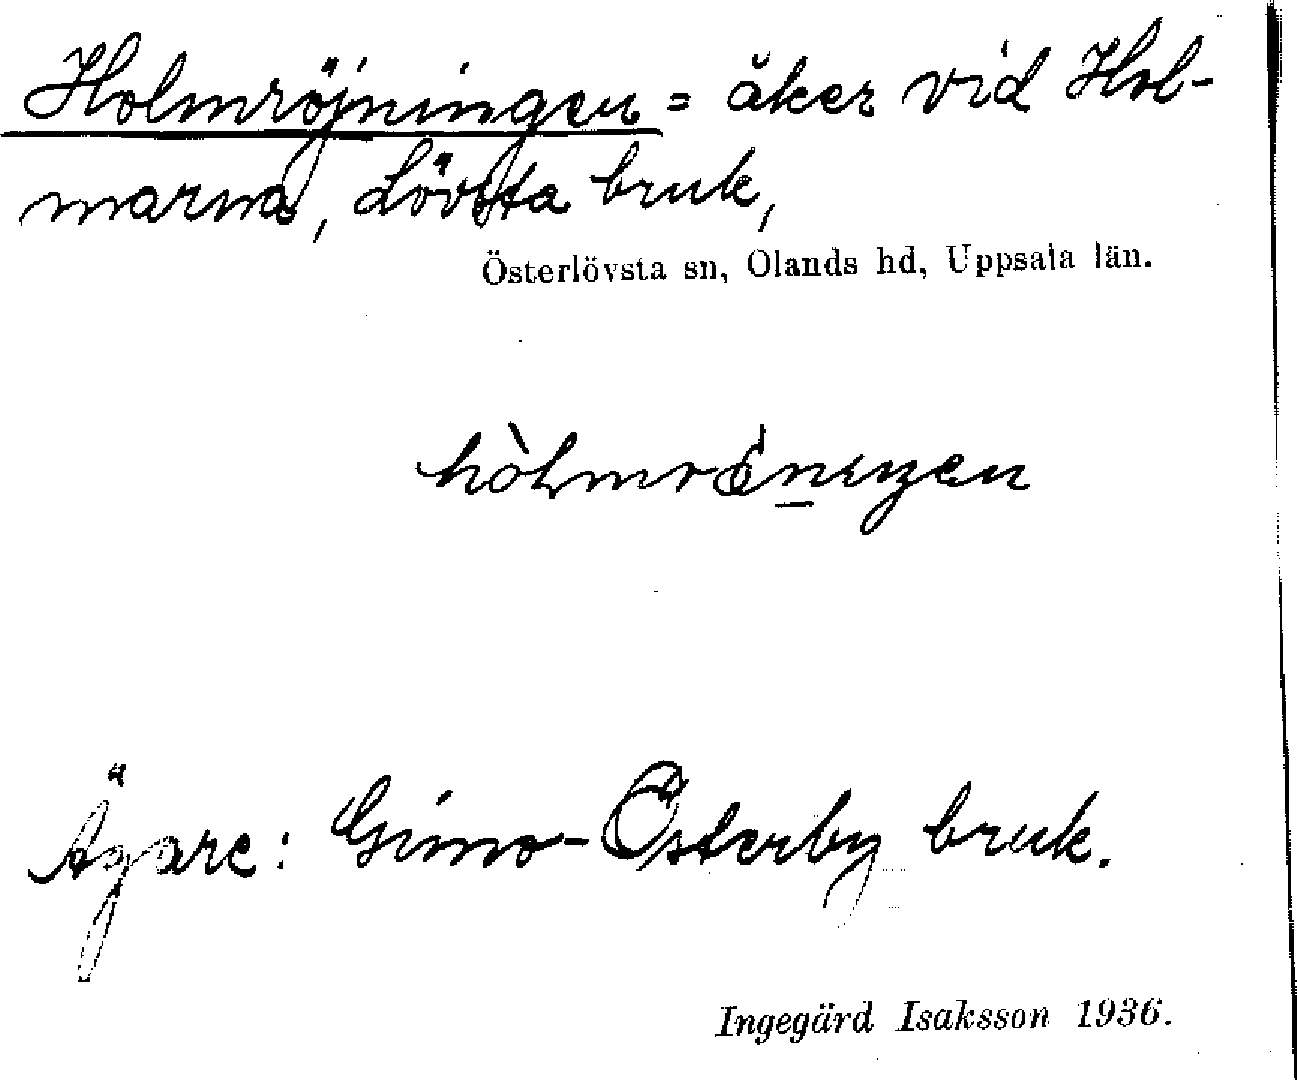 Holmröjningen = åker vid Hol-
marna, Lövsta bruk,
Österlövsta sn, Olands hd, Uppsala län.
Ägare: Gimo-Österby bruk.
Ingegärd Isaksson 1936.